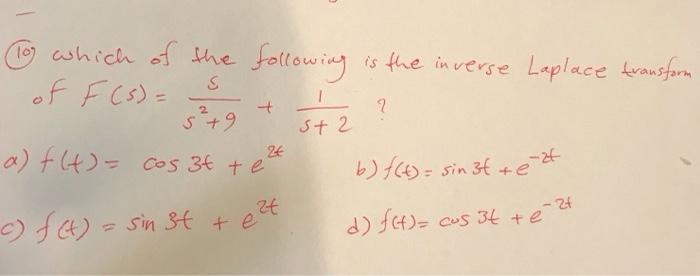 (10) which of the following is the inverse Laplace transform
of F(s) = s/(s²+9) + 1/(s+2) ?
a) f(t) = cos 3t + e^{2t}
b) f(t) = sin 3t + e^{-2t}
c) f(t) = sin 3t + e^{2t}
d) f(t) = cos 3t + e^{-2t}